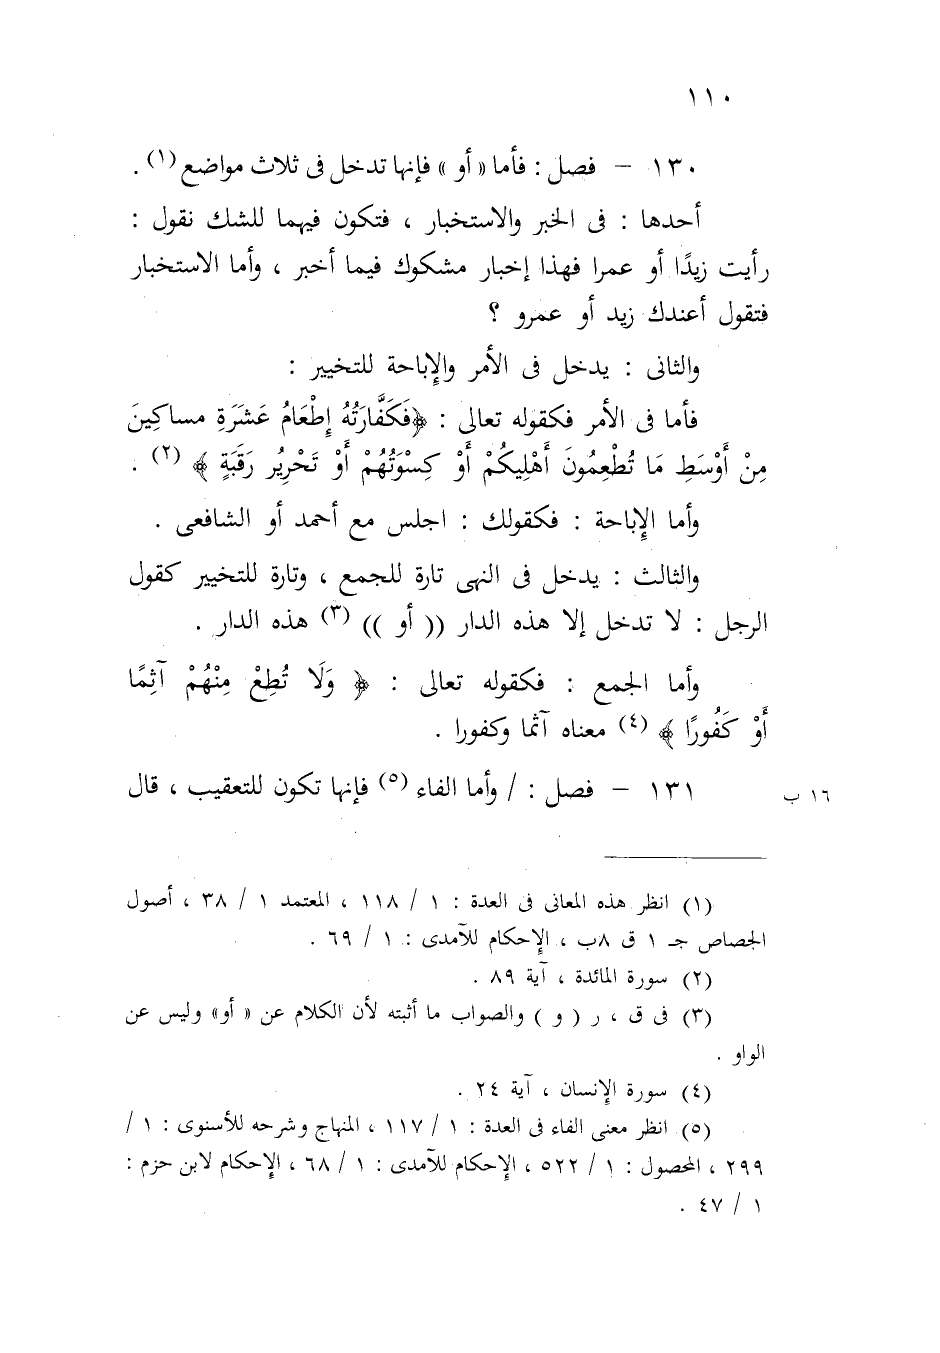 ١١٠
١٣٠ – فصل : فأما « أو » فإنها تدخل فى ثلاث مواضع (١) .
أحدها : فى الخبر والاستخبار ، فتكون فيهما للشك نقول :
رأيت زيدًا أو عمرا فهذا إخبار مشكوك فيما أخبر ، وأما الاستخبار
فتقول أعندك زيد أو عمرو ؟
والثانى : يدخل فى الأمر والإباحة للتخيير :
فأما فى الأمر فكقوله تعالى : ﴿فَكَفَّارَتُهُ إِطْعَامُ عَشَرَةِ مساكِينَ
مِنْ أَوْسَطِ مَا تُطْعِمُونَ أَهْلِيكُمْ أَوْ كِسْوَتُهُمْ أَوْ تَحْرِيُر رَقَبَةٍ ﴾ (٢) .
وأما الإباحة : فكقولك : اجلس مع أحمد أو الشافعى .
والثالث : يدخل فى النهى تارة للجمع ، وتارة للتخيير كقول
الرجل : لا تدخل إلا هذه الدار (( أو )) (٣) هذه الدار .
وأما الجمع : فكقوله تعالى : ﴿ وَلَا تُطِعْ مِنْهُمْ آثِمًا
أَوْ كَفُورًا ﴾ (٤) معناه آثما وكفورا .
١٣١ – فصل : / وأما الفاء (٥) فإنها تكون للتعقيب ، قال
١٦ ب
(١) انظر هذه المعانى فى العدة : ١ / ١١٨ ، المعتمد ١ / ٣٨ ، أصول
الجصاص جـ ١ ق ٨ب ، الإحكام للآمدى : ١ / ٦٩ .
(٢) سورة المائدة ، آية ٨٩ .
(٣) فى ق ، ر ( و ) والصواب ما أثبته لأن الكلام عن « أو» وليس عن
الواو .
(٤) سورة الإنسان ، آية ٢٤ .
(٥) انظر معنى الفاء فى العدة : ١ / ١١٧ ، المنهاج وشرحه للأسنوى : ١ /
٢٩٩ ، المحصول : ١ / ٥٢٢ ، الإحكام للآمدى : ١ / ٦٨ ، الإحكام لابن حزم :
١ / ٤٧ .